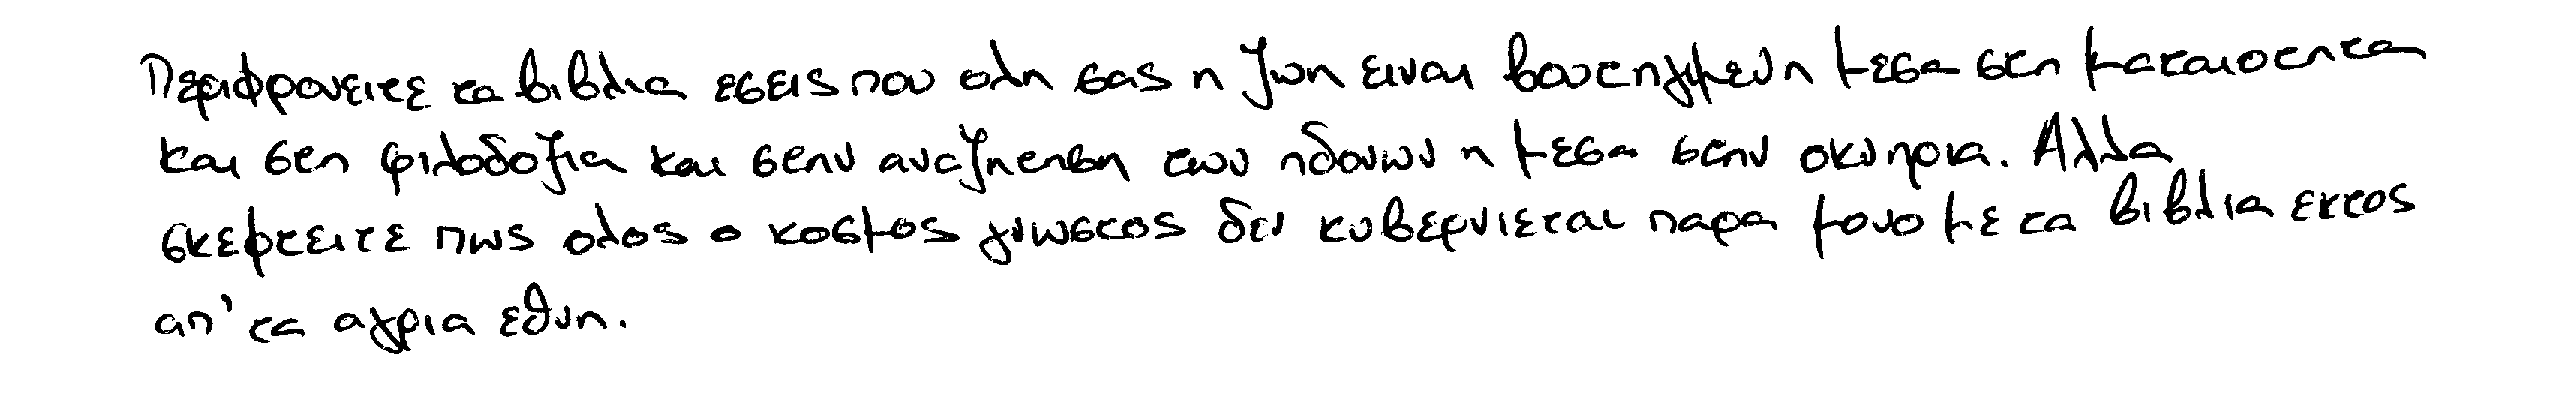 Περιφρονειτε τα βιβλια εσεις που ολη σας η ζωη ειναι βουτηγμενη μεσα στη ματαιοτητα
και στη φιλοδοξια και στην αναζητηση των ηδονων η μεσα στην οκνηρια. Αλλα
σκεφτειτε πως ολος ο κοσμος γνωστος δεν κυβερνιεται παρα μονο με τα βιβλια εκτος
απ' τα αγρια εθνη.